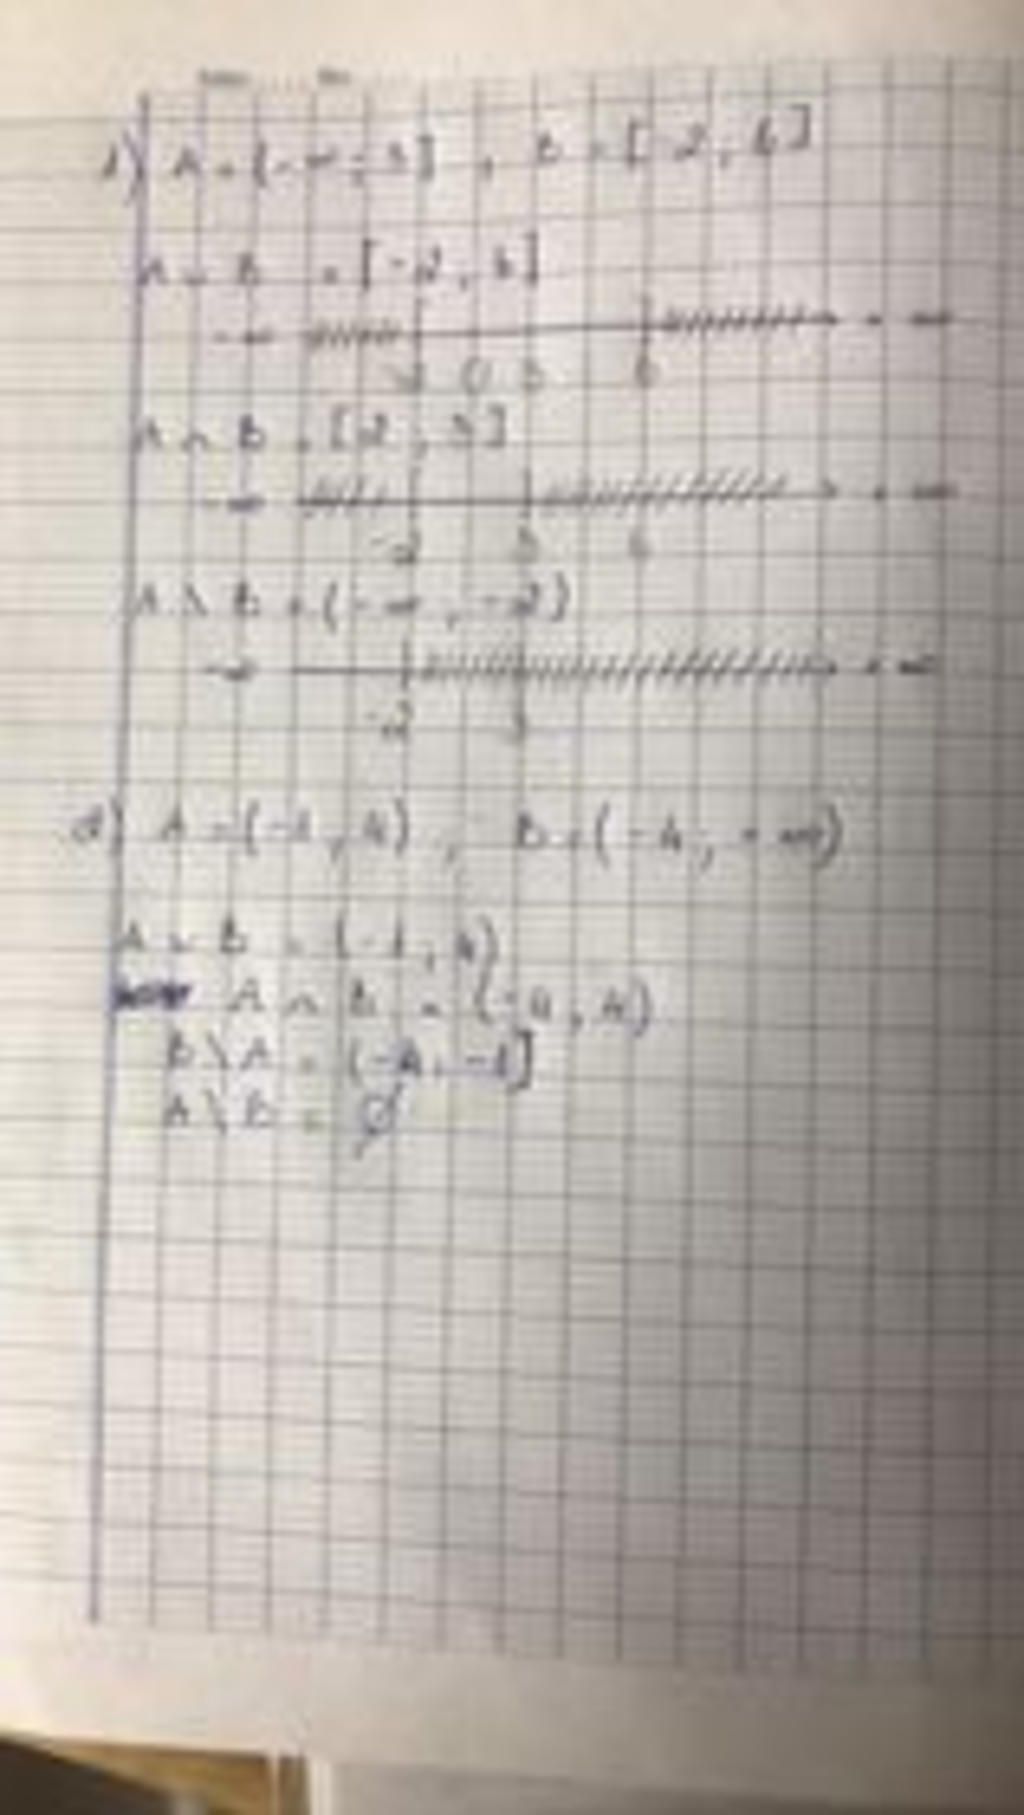 1) A = (-∞; 3] , B = [-2, 6]
A ∪ B = [-2, 6]
-∞ +∞
0 3 6
A ∩ B = [-2, 3]
-∞ +∞
-2 3 6
A \ B = (-∞, -2)
-∞ +∞
-2 3
2) A = (-1, 4) , B = (-4, +∞)
A ∪ B = (-1, 4)
A ∩ B = (-4, 4)
B \ A = (-4, -1]
A \ B = Ø